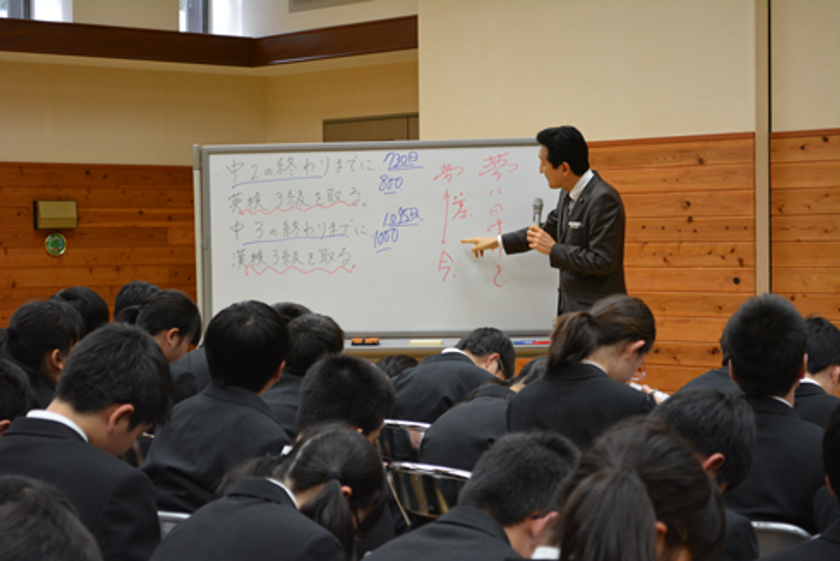 中2の終わりまでに 730日
英検3級を取る。 800
中3の終わりまでに 1095日
漢検3級を取る 1000
夢に向けて
夢
差
今